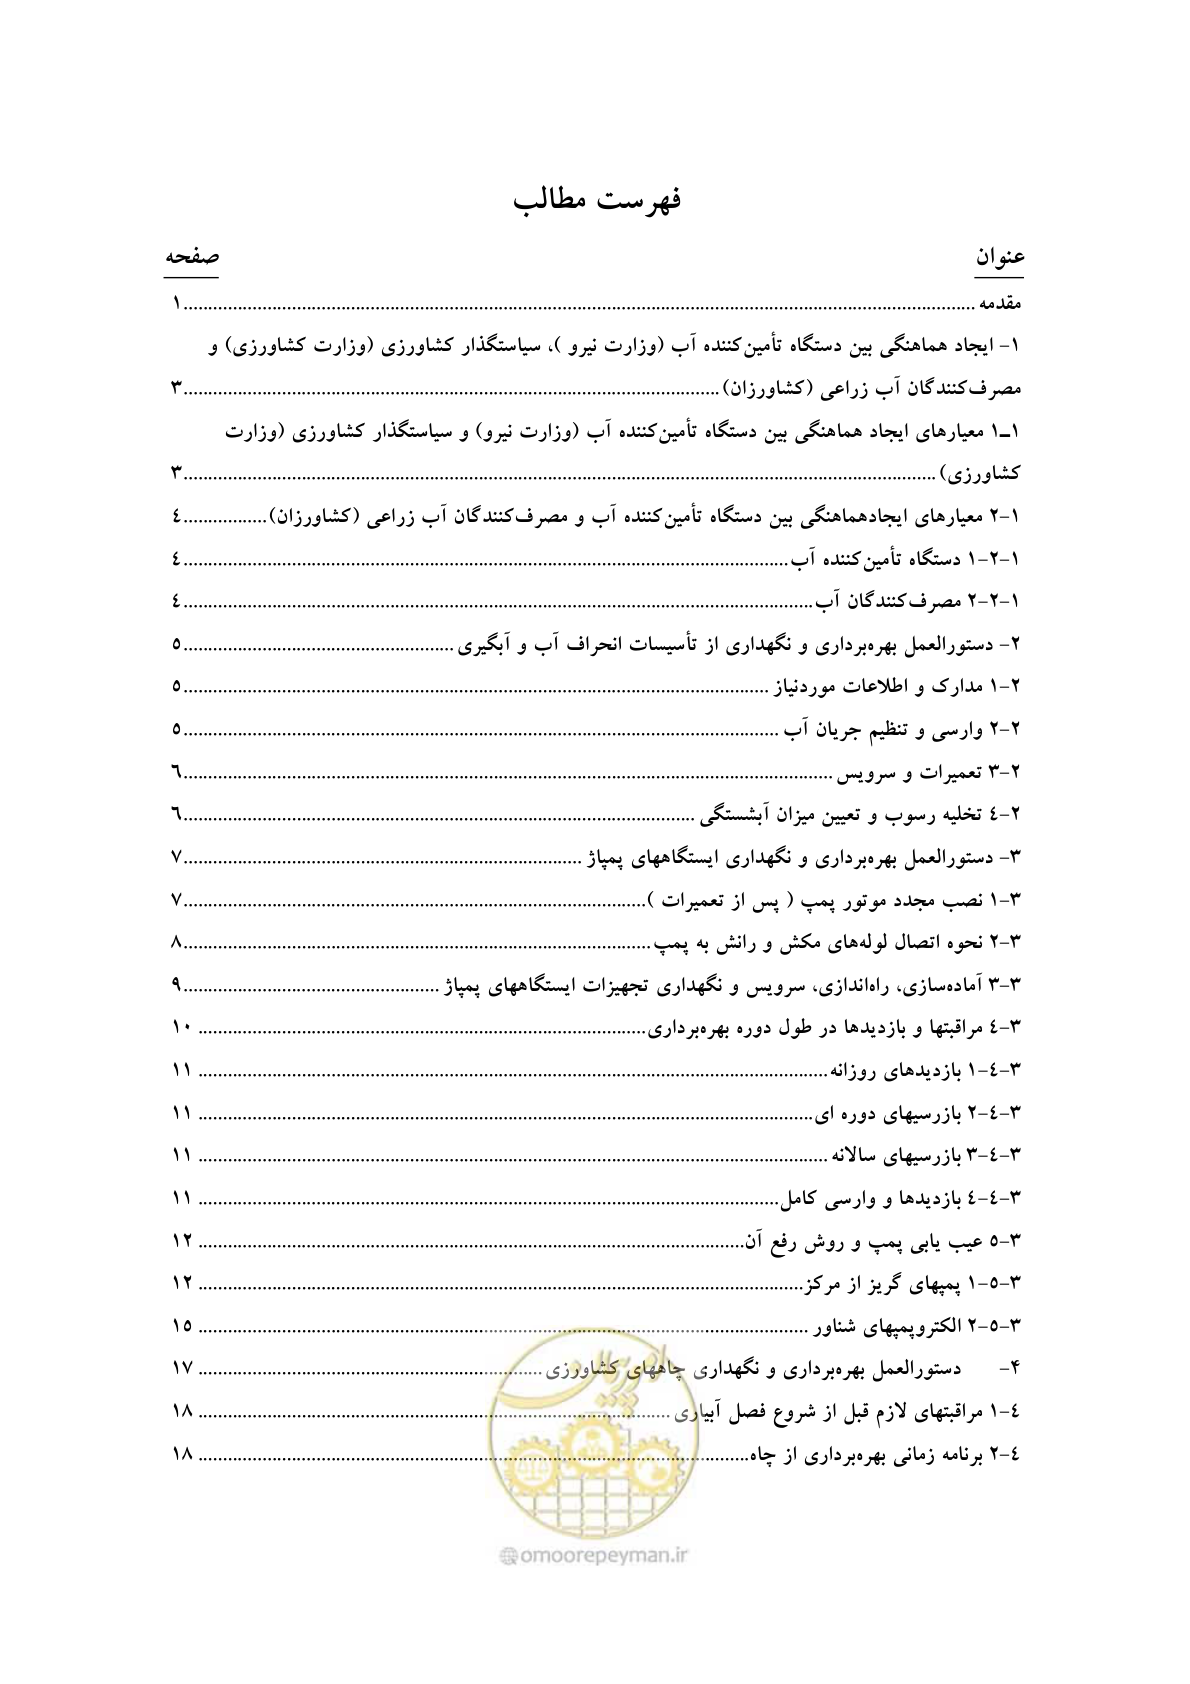 فهرست مطالب
عنوان صفحه
مقدمه ............................................................ ۱
۱- ایجاد هماهنگی بین دستگاه تأمین‌کننده آب (وزارت نیرو )، سیاستگذار کشاورزی (وزارت کشاورزی) و
مصرف‌کنندگان آب زراعی (کشاورزان)............................................................۳
۱ـ۱ معیارهای ایجاد هماهنگی بین دستگاه تأمین‌کننده آب (وزارت نیرو) و سیاستگذار کشاورزی (وزارت
کشاورزی) ............................................................۳
۱-۲ معیارهای ایجادهماهنگی بین دستگاه تأمین‌کننده آب و مصرف‌کنندگان آب زراعی (کشاورزان).................٤
۱-۲-۱ دستگاه تأمین‌کننده آب............................................................٤
۱-۲-۲ مصرف‌کنندگان آب............................................................٤
۲- دستورالعمل بهره‌برداری و نگهداری از تأسیسات انحراف آب و آبگیری ............................................................۵
۲-۱ مدارک و اطلاعات موردنیاز ............................................................۵
۲-۲ وارسی و تنظیم جریان آب ............................................................۵
۲-۳ تعمیرات و سرویس ............................................................٦
۲-٤ تخلیه رسوب و تعیین میزان آبشستگی ............................................................٦
۳- دستورالعمل بهره‌برداری و نگهداری ایستگاههای پمپاژ ............................................................۷
۳-۱ نصب مجدد موتور پمپ ( پس از تعمیرات )............................................................۷
۳-۲ نحوه اتصال لوله‌های مکش و رانش به پمپ............................................................۸
۳-۳ آماده‌سازی، راه‌اندازی، سرویس و نگهداری تجهیزات ایستگاههای پمپاژ ............................................................۹
۳-٤ مراقبتها و بازدیدها در طول دوره بهره‌برداری............................................................ ۱۰
۳-٤-۱ بازدیدهای روزانه............................................................ ۱۱
۳-٤-۲ بازرسیهای دوره ای............................................................ ۱۱
۳-٤-۳ بازرسیهای سالانه ............................................................ ۱۱
۳-٤-٤ بازدیدها و وارسی کامل............................................................ ۱۱
۳-۵ عیب یابی پمپ و روش رفع آن............................................................ ۱۲
۳-۵-۱ پمپهای گریز از مرکز............................................................ ۱۲
۳-۵-۲ الکتروپمپهای شناور ............................................................ ۱۵
۴- دستورالعمل بهره‌برداری و نگهداری چاههای کشاورزی ............................................................ ۱۷
٤-۱ مراقبتهای لازم قبل از شروع فصل آبیاری ............................................................ ۱۸
٤-۲ برنامه زمانی بهره‌برداری از چاه............................................................ ۱۸
امور پیمان
@omoorepeyman.ir